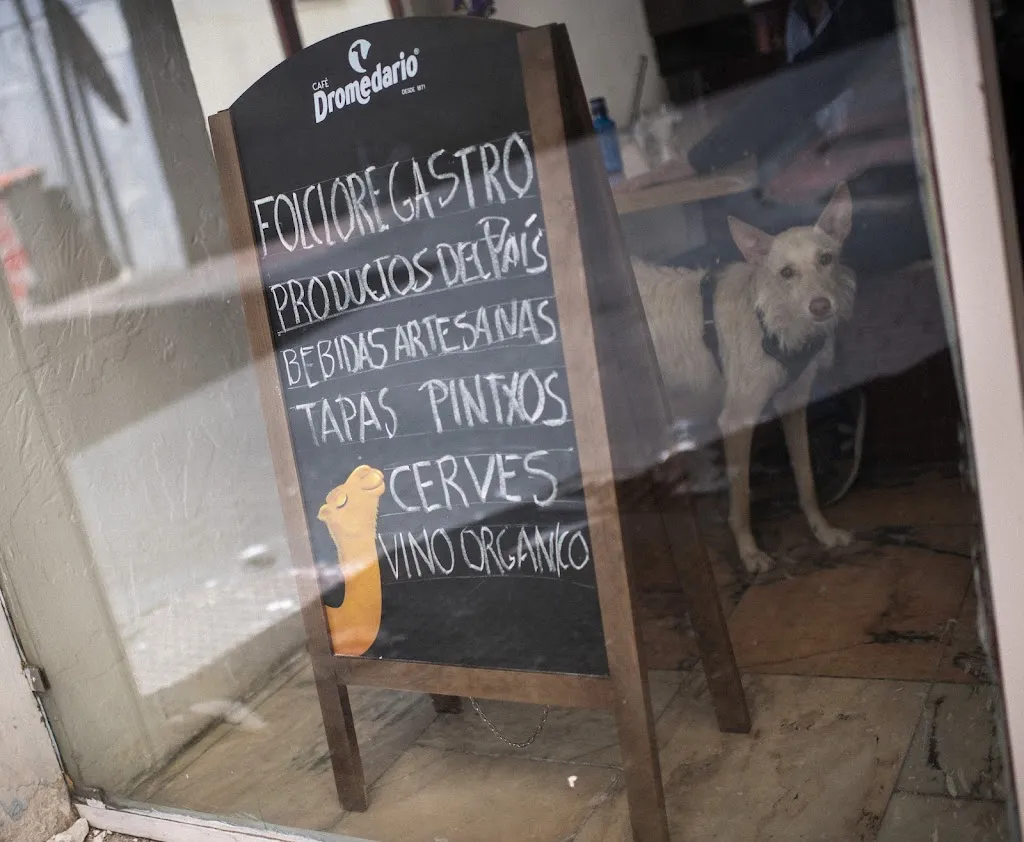 CAFÉ
Dromedario®
DESDE 1871
FOLCLORE GASTRO
PRODUCTOS DEL PAÍS
BEBIDAS ARTESANAS
TAPAS PINTXOS
CERVES
VINO ORGANICO